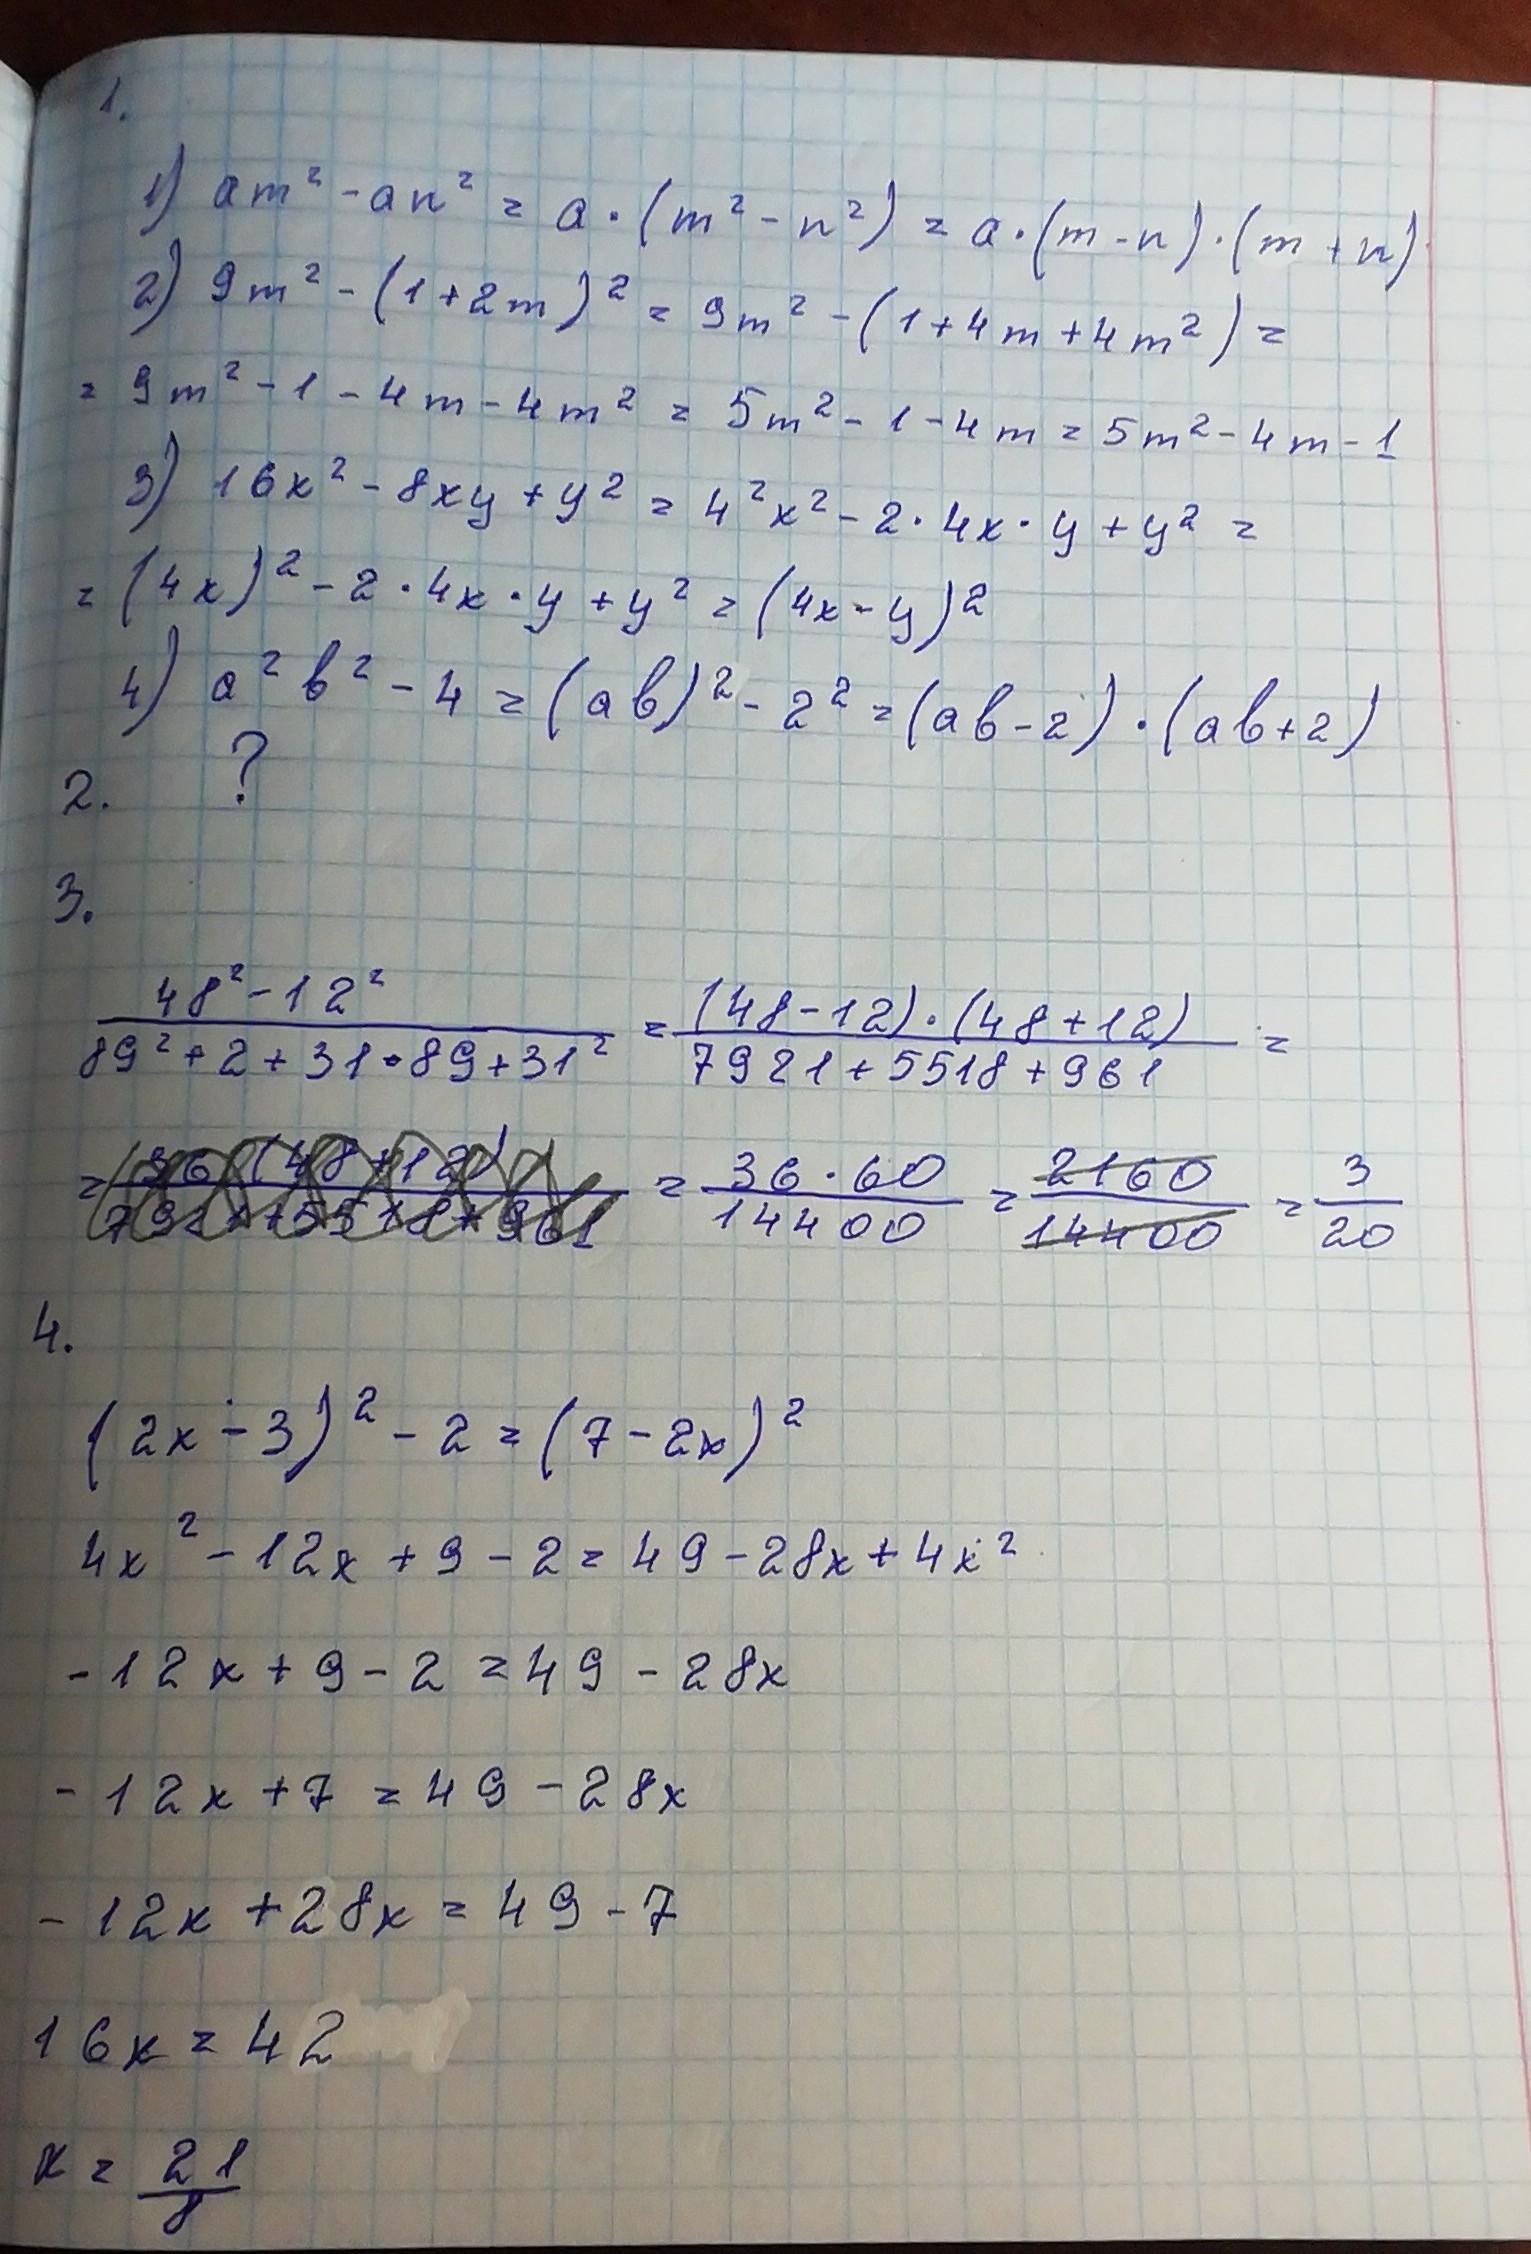 1.
1) am² - an² = a · (m² - n²) = a · (m - n) · (m + n)
2) 9m² - (1 + 2m)² = 9m² - (1 + 4m + 4m²) =
= 9m² - 1 - 4m - 4m² = 5m² - 1 - 4m = 5m² - 4m - 1
3) 16x² - 8xy + y² = 4²x² - 2 · 4x · y + y² =
= (4x)² - 2 · 4x · y + y² = (4x - y)²
4) a²b² - 4 = (ab)² - 2² = (ab - 2) · (ab + 2)
2. ?
3.
48² - 12² / 89² + 2 + 31 · 89 + 31² = (48 - 12) · (48 + 12) / 7921 + 5518 + 961 =
= = 36 · 60 / 14400 = 2160 / 14400 = 3 / 20
4.
(2x - 3)² - 2 = (7 - 2x)²
4x² - 12x + 9 - 2 = 49 - 28x + 4x²
- 12x + 9 - 2 = 49 - 28x
- 12x + 7 = 49 - 28x
- 12x + 28x = 49 - 7
16x = 42
x = 21 / 8